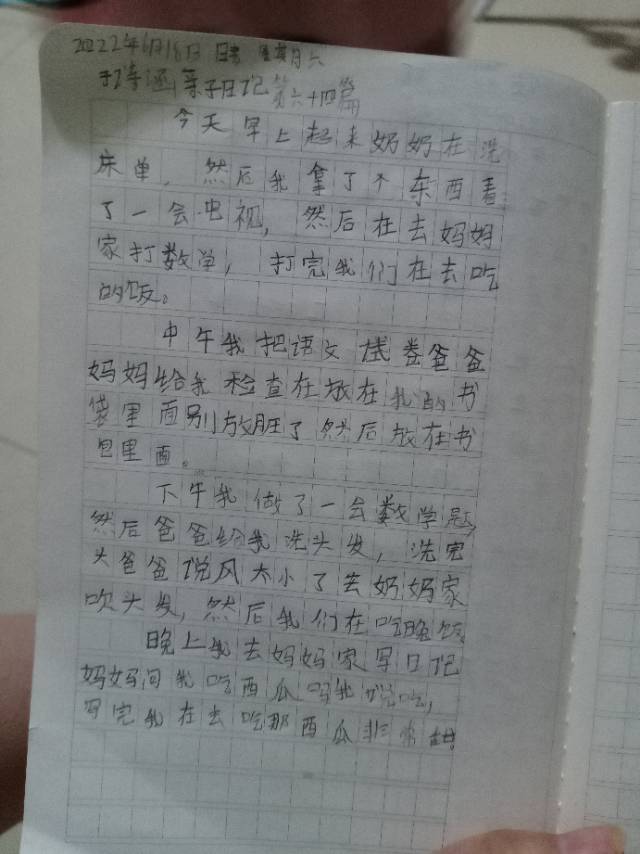 2022年6月18日 星期六
亲子日记第六十四篇
今天早上起来奶奶在洗
床单，然后我拿了个东西看
了一会电视，然后在去妈妈
家打数学，打完我们在去吃
的饭。
中午我把语文试卷爸爸
妈妈给我检查在放在我的书
袋里面别放脏了然后放在书
包里面。
下午我做了一会数学题，
然后爸爸给我洗头发，洗完
头爸爸说风太小了去奶妈家
吹头发，然后我们在吃晚饭
晚上我去妈妈家写日记
妈妈问我吃西瓜吗我说吃，
写完我在去吃那西瓜非常甜